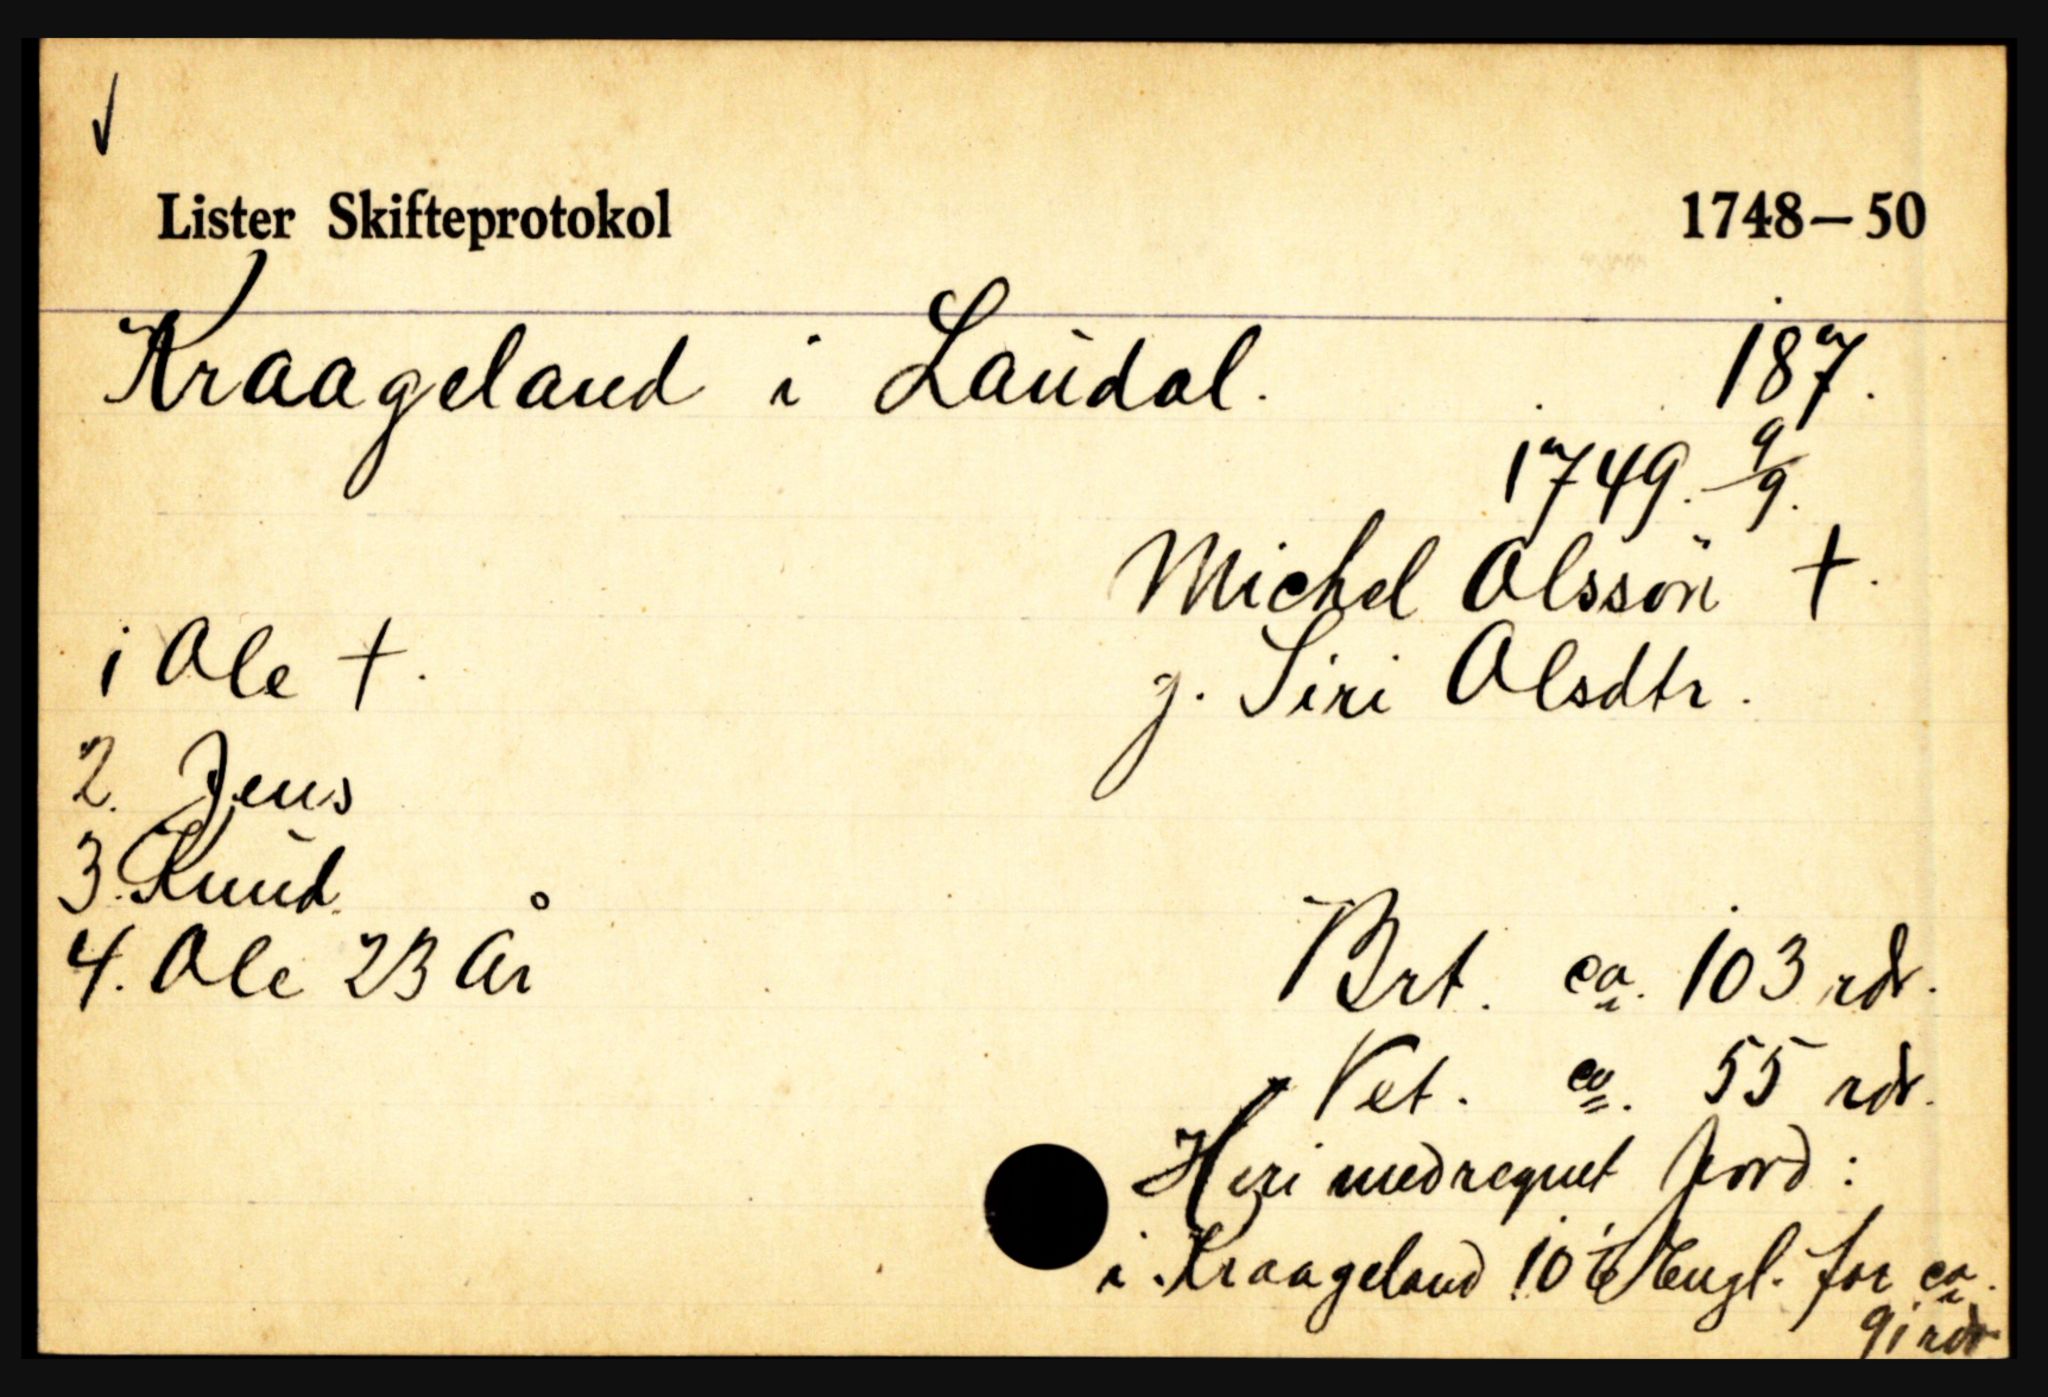 Lister Skifteprotokol 1748—50
Kraageland i Laudal. 187.
1749. 9/9.
Michel Olssøn †.
g. Siri Olsdtr.
1 Ole †.
2. Jens
3. Knud
4. Ole 23 år
Brt. ca. 103 rdr.
Net. ca. 55 rdr.
Heri medregnet Jord:
i Kraageland 10 Engl. for ca.
91 rdr